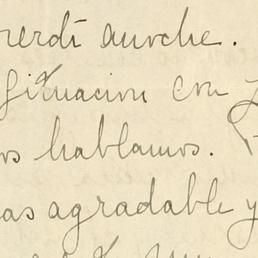 perdí anoche.
situacion con
os hablamos.
as agradable y